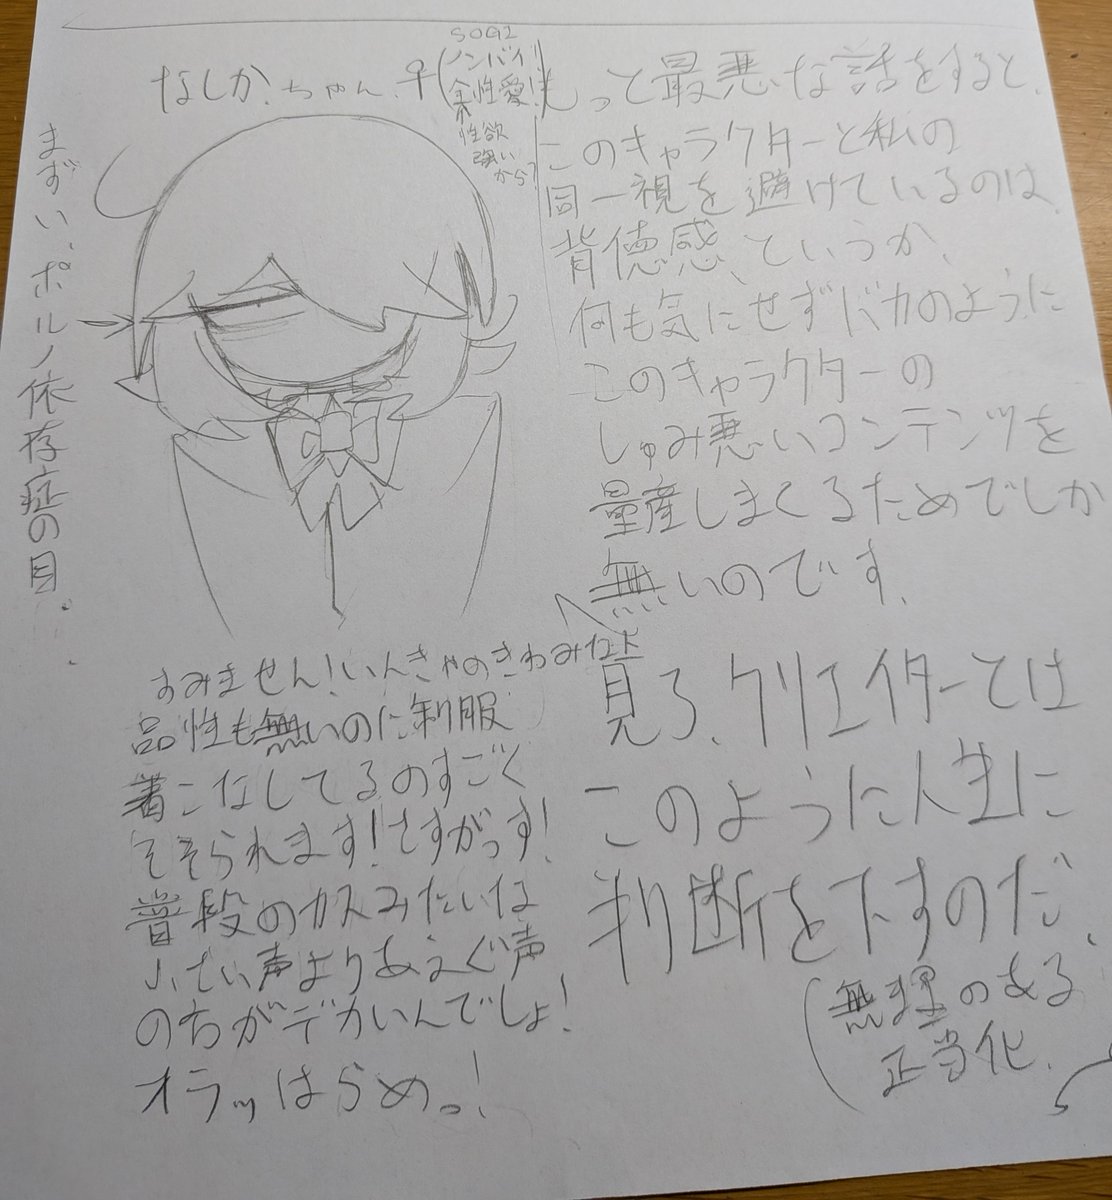 なしかちゃん.♀
(SOGI
ノンバイ
全性愛!)
性欲
強い
から?
まずい、ポルノ依存症の目.
もっと最悪な話をすると、
このキャラクターと私の
同一視を避けているのは、
背徳感、というか、
何も気にせずバカのように
このキャラクターの
しゅみ悪いコンテンツを
量産しまくるためでしか
無いのです.
すみません!いんきゃのきわみなよ
品性も無いのに制服
着こなしてるのすごく
そそられます!さすがっす!
普段のカスみたいな
小さい声よりあえぐ声
のちがデカいんでしょ!
オラッはらめっ!
見ろ、クリエイターとは
このように人生に
判断を下すのだ、
(無理のある
正当化.